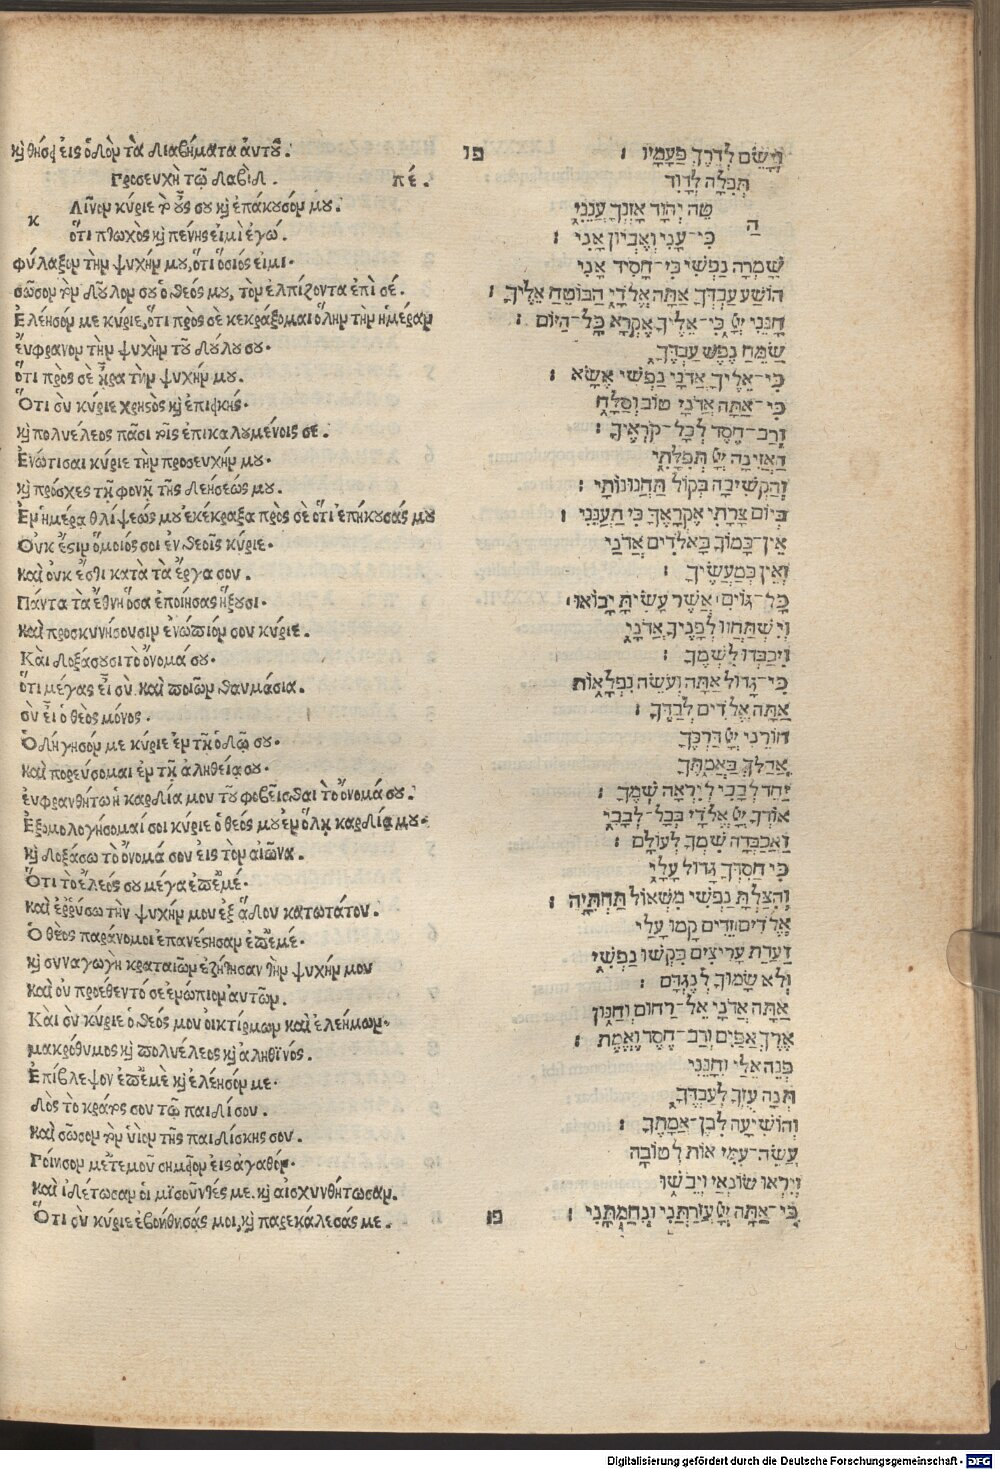 κ̀ θήσει εἰς ὁδὸν τὰ διαβήματα ἀυτοῦ.
Προσευχὴ τῶ δαβὶδ. πέ.
Κ
Λῖνον κύριε τὸ οὖς σου κ̀ ἐπάκουσόν μου.
ὅτι πτωχὸς κ̀ πένης εἰμὶ ἐγώ.
φύλαξον τὴν ψυχήν μου, ὅτι ὅσιός ειμι.
σῶσον τὸν δοῦλον σου ὁ θεός μου, τὸν ελπίζοντα ἐπὶ σέ.
Ἐλέησόν με κύριε, ὅτι πρὸς σὲ κεκράξομαι ὅλην τὴν ἡμέραν
ἔυφρανον τὴν ψυχὴν τοῦ δούλου σου.
ὅτι πρὸς σὲ ἦρα τὴν ψυχήν μου.
Ὅτι σὺ κύριε χρηστὸς κ̀ ἐπιεικής.
κ̀ πολυέλεος πᾶσι τοῖς ἐπικαλουμένοις σε.
Ἐνώτισαι κύριε τὴν προσευχήν μου.
κ̀ πρόσχες τῇ φονῇ τῆς δεήσεώς μου.
Ἐν ἡμέρα θλίψεώς μου ἐκέκραξα πρὸς σὲ ὅτι ἐπήκουσάς μου
Ὀυκ ἔστιν ὅμοιός σοι ἐν θεοῖς κύριε.
καὶ ὀυκ ἔστι κατὰ τὰ ἔργα σου.
Πάντα τὰ ἔθνη ὅσα ἐποίησας ἥξουσι.
καὶ προσκυνήσουσιν ἐνώπιόν σου κύριε.
Κὰι δοξάσουσι τὸ ὄνομά σου.
ὅτι μέγας εἶ σὺ καὶ ποιῶν θαυμάσια.
σὺ εἶ ὁ θεὸς μόνος.
Ὁδήγησόν με κύριε ἐν τῇ ὁδῷ σου.
καὶ πορεύσομαι ἐν τῇ ἀληθείᾳ σου.
ἐυφρανθήτω ἡ καρδία μου τοῦ φοβεῖσθαι τὸ ὄνομά σου.
Ἐξομολογήσομαί σοι κύριε ὁ θεός μου ἐν ὅλῃ καρδίᾳ μου.
κ̀ δοξάσω τὸ ὄνομά σου ἐις τὸν αἰῶνα.
Ὅτι τὸ ἔλεός σου μέγα ἐπ᾽ ἐμέ.
καὶ ἐῤῥύσω τὴν ψυχήν μου ἐξ ᾅδου κατωτάτου.
Ὁ θεὸς παράνομοι ἐπανέστησαν ἐπ᾽ ἐμέ.
κ̀ συναγωγὴ κραταιῶν ἐζήτησαν τὴν ψυχήν μου
καὶ ὀυ προέθεντό σε ἐνώπιον ἀυτῶν.
Κὰι σὺ κύριε ὁ θεός μου ὀικτίρμων καὶ ἐλεήμων.
μακρόθυμος κ̀ πολυέλεος κ̀ ἀληθινός.
Ἐπίβλεψον ἐπ᾽ ἐμὲ κ̀ ἐλέησόν με.
δὸς τὸ κράτος σου τῷ παιδί σου.
καὶ σῶσον τὸν ὑιὸν τῆς παιδίσκης σου.
Ποίησον μετ᾽ ἐμοῦ σημεῖον ἐις ἀγαθόν.
καὶ ἰδέτωσαν ὁι μισοῦντές με. κ̀ ἀισχυνθήτωσαν.
Ὅτι σὺ κύριε ἐβοήθησάς μοι, κ̀ παρεκάλεσάς με.
וְיָשֵׂם לְדֶרֶךְ פְּעָמָיו : פו
תְּפִלָּה לְדָוִד
ה
טֵּה יְהוָֹה אָזְנְךָ עֲנֵנִי
כִּי־עָנִי וְאֶבְיוֹן אָנִי :
שָׁמְרָה נַפְשִׁי כִּי־חָסִיד אָנִי
הוֹשַׁע עַבְדְּךָ אַתָּה אֱלֹדַי הַבּוֹטֵחַ אֵלֶיךָ :
חָנֵּנִי יְיָ כִּי־אֵלֶיךָ אֶקְרָא כָּל־הַיּוֹם :
שַׂמֵּחַ נֶפֶשׁ עַבְדֶּךָ
כִּי־אֵלֶיךָ אֲדֹנָי נַפְשִׁי אֶשָּׂא :
כִּי־אַתָּה אֲדֹנָי טוֹב וְסַלָּח
וְרַב־חֶסֶד לְכָל־קֹרְאֶיךָ :
הַאֲזִינָה יְיָ תְּפִלָּתִי
וְהַקְשִׁיבָה בְּקוֹל תַּחֲנוּנוֹתָי :
בְּיוֹם צָרָתִי אֶקְרָאֶךָּ כִּי תַעֲנֵנִי :
אֵין־כָּמוֹךָ בָאֱלֹדִים אֲדֹנָי
וְאֵין כְּמַעֲשֶׂיךָ :
כָּל־גּוֹיִם אֲשֶׁר עָשִׂיתָ יָבוֹאוּ
וְיִשְׁתַּחֲווּ לְפָנֶיךָ אֲדֹנָי
וִיכַבְּדוּ לִשְׁמֶךָ :
כִּי־גָדוֹל אַתָּה וְעֹשֵׂה נִפְלָאוֹת
אַתָּה אֱלֹדִים לְבַדֶּךָ :
הוֹרֵנִי יְיָ דַּרְכֶּךָ
אֲהַלֵּךְ בַּאֲמִתֶּךָ
יַחֵד לְבָבִי לְיִרְאָה שְׁמֶךָ :
אוֹדְךָ יְיָ אֱלֹדַי בְּכָל־לְבָבִי
וַאֲכַבְּדָה שִׁמְךָ לְעוֹלָם :
כִּי חַסְדְּךָ גָּדוֹל עָלָי
וְהִצַּלְתָּ נַפְשִׁי מִשְּׁאוֹל תַּחְתִּיָּה :
אֱלֹדִים זֵדִים קָמוּ עָלַי
וַעֲדַת עָרִיצִים בִּקְשׁוּ נַפְשִׁי
וְלֹא שָׂמוּךָ לְנֶגְדָּם :
אַתָּה אֲדֹנָי אֵל־רַחוּם וְחַנּוּן
אֶרֶךְ אַפַּיִם וְרַב־חֶסֶד וֶאֱמֶת :
פְּנֵה אֵלַי וְחָנֵּנִי
תְּנָה עֻזְּךָ לְעַבְדֶּךָ
וְהוֹשִׁיעָה לְבֶן־אֲמָתֶךָ :
עֲשֵׂה־עִמִּי אוֹת לְטוֹבָה
וְיִרְאוּ שׂוֹנְאַי וְיֵבֹשׁוּ
כִּי־אַתָּה יְיָ עֲזַרְתַּנִי וְנִחַמְתָּנִי : פו
Digitalisierung gefördert durch die Deutsche Forschungsgemeinschaft - DFG